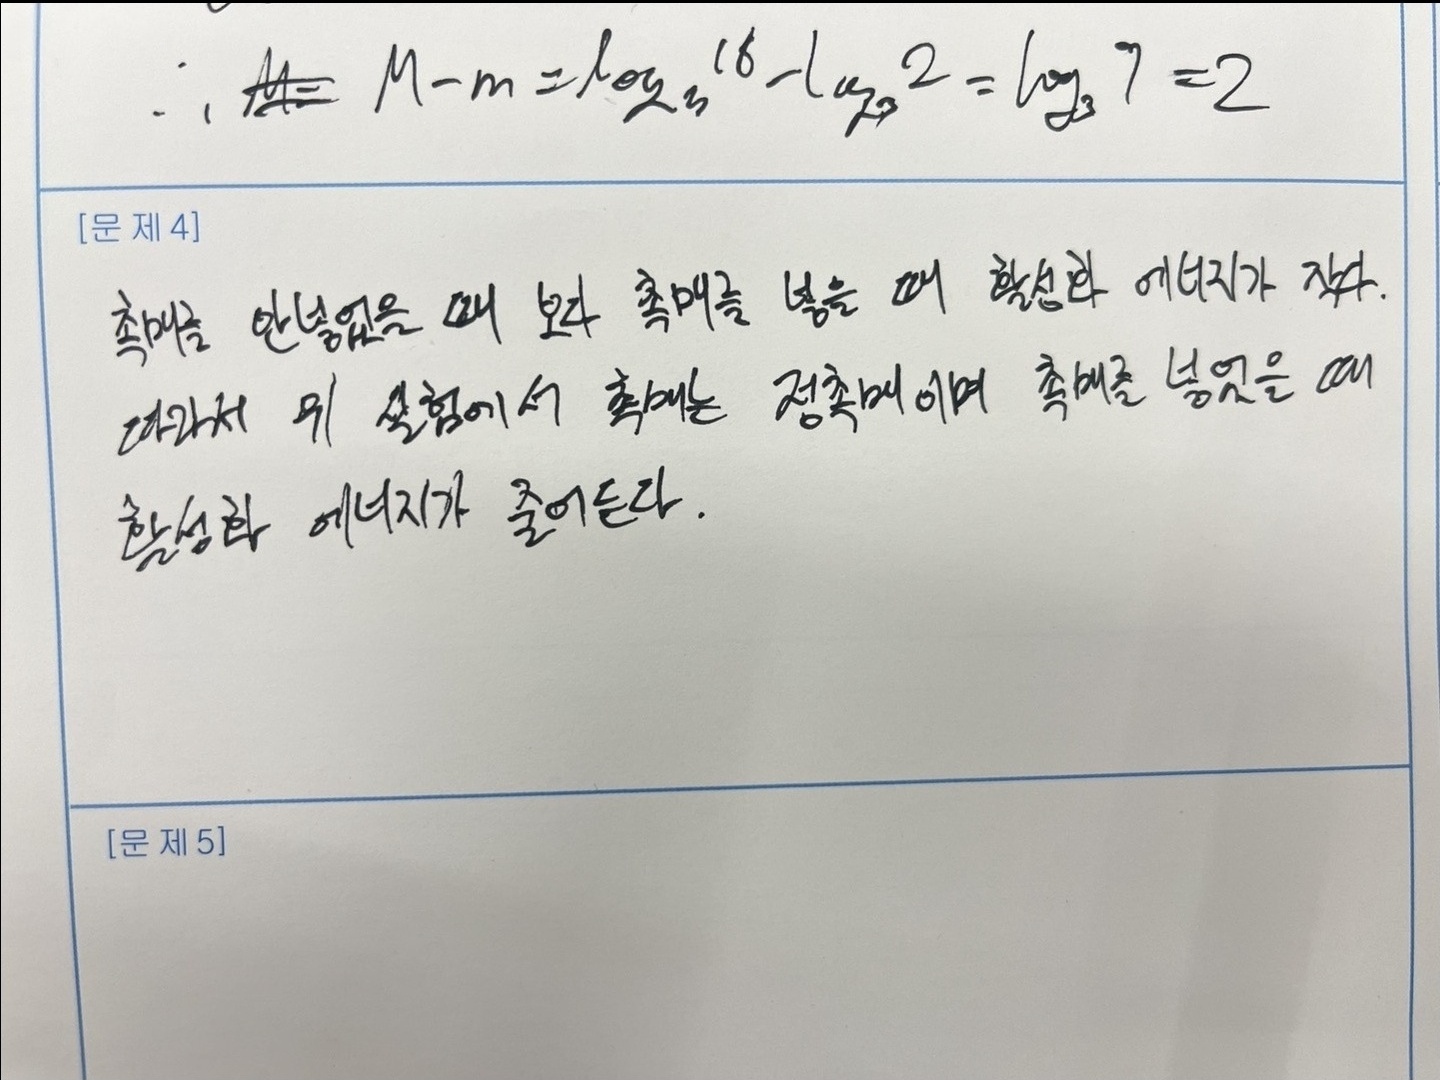 ∴ M - m = log₃18 - log₃2 = log₃9 = 2
[문제 4]
촉매를 안넣었을 때 보다 촉매를 넣을 때 활성화 에너지가 작다.
따라서 위 실험에서 촉매는 정촉매이며 촉매를 넣었을 때
활성화 에너지가 줄어든다.
[문제 5]